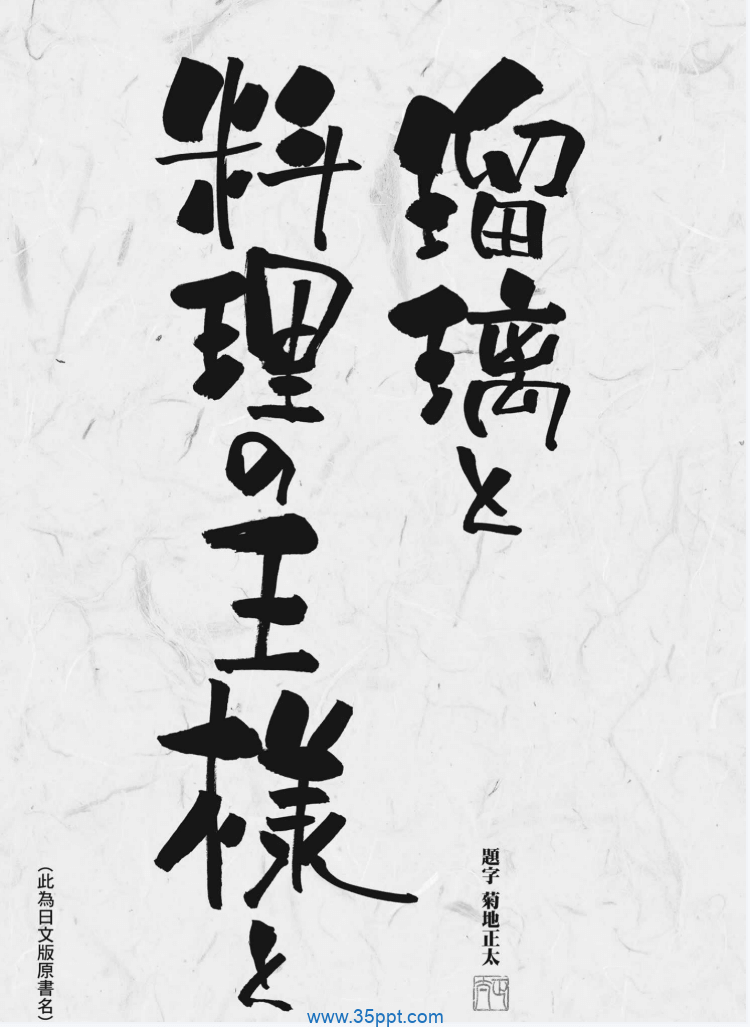 瑠璃と
料理の王様と
題字 菊地正太
（此為日文版原書名）
www.35ppt.com